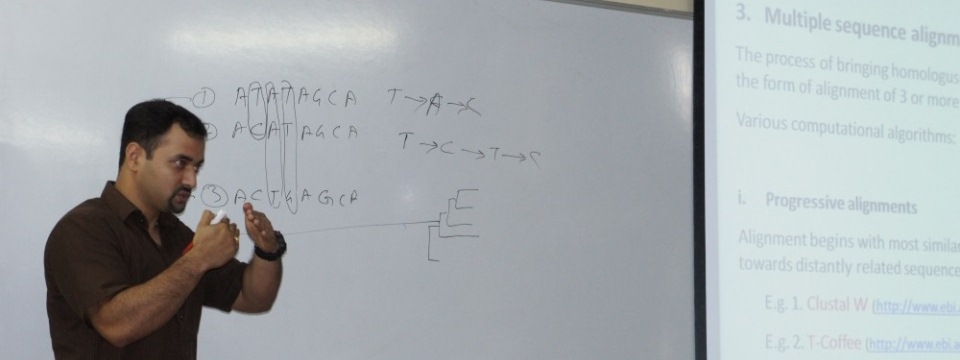 ① A T A T A G C A T→A→C
A C A T A G C A T→C→T→C
③ A C T G A G C A
3. Multiple sequence alignm
The process of bringing homologus
the form of alignment of 3 or more
Various computational algorithms:
i. Progressive alignments
Alignment begins with most simila
towards distantly related sequence
E.g. 1. Clustal W (http://www.ebi.a
E.g. 2. T-Coffee (http://www.ebi.a